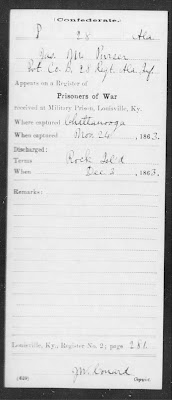 (Confederate.)
P 28 Ala
Jas. M. Purser
Pvt. Co. D, 28 Regt. Ala. Inf.
Appears on a Register of
Prisoners of War
received at Military Prison, Louisville, Ky.
Where captured Chattanooga
When captured Nov. 26, 1863.
Discharged:
Terms Rock Isl'd
When Dec 2, 1863.
Remarks:
Louisville, Ky., Register No. 2; page
(639) J.W. Conard
Copyist.